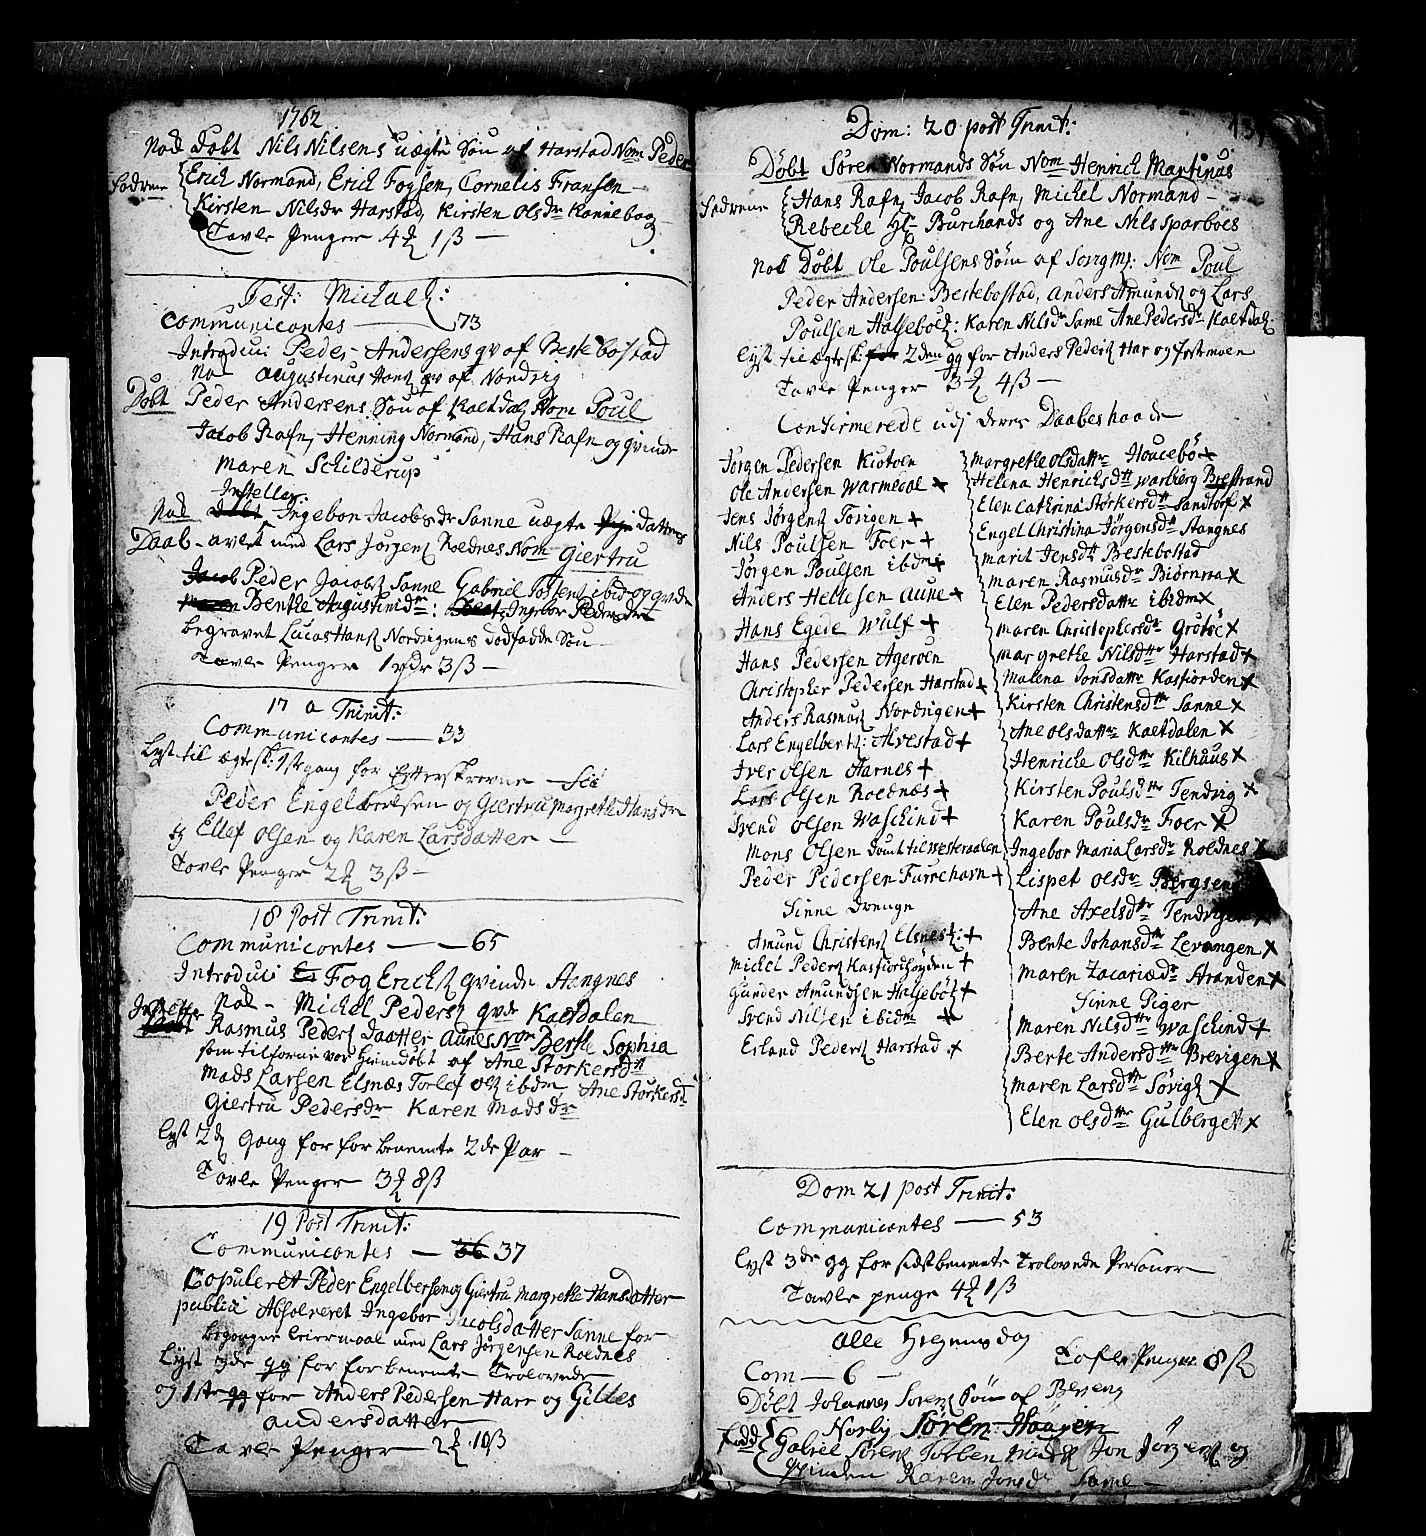 1762
Nok Døbt Nils Nilsens uægte Søn af Harstad Nom Peder
Fadrene Erich Normand, Erich Fogsen, Cornelis Fransen
Kirsten Nilsdr Harstad, Kirsten Olsdr Kannebog
Tavle Penger 4 1ß
Fest: Michaels:
Communicantes 73
Introduc: Peder Andersens qv af Bestebostad
Nok Augustinus Hans qv af Nordvig
Døbt Peder Andersens Søn af Kaetdal Nom Poul
Jacob Rafn, Henning Normand, Hans Rafn og qvinde
Maren Schilderup
Insteller
Nok Døbt Ingebor Jacobsdr Sanne uægte datters
Daab avlet med Lars Jørgens Roldnes Nom Giertru
Jacob Peder Jacobs Sanne Gabriel Tostens ibid og qvinde
Maren Benthe Augustinidr: Ingebor Pedersdtr
begravet Lucas Hans Nordvigens dødfødde Søn
Tavle Penger 1 3ß
17 a Trinit:
Communicantes 33
Lyst til ægtesk: 1ste gang for Efterskrevne
Peder Engelbretsen og Giertru Margrethe Hansdr
Ellef Olsen og Karen Larsdatter
Tavle Penger 2 3ß
18 Post Trinit:
Communicantes 65
Introduc: Fog Erichs qvinde Stangnes
Nok Michel Peders qvdr Kaetdalen
Rasmus Peders Daatter Aunes Nom Berthe Sophia
som tilforne var hiemdøbt af Ane Storkersdtr
Mads Larsen Elsnæs Torlef Ols ibdm, Ane Storkersdr
Giertru Pedersdr Karen Madsdr
Lyst 2de gang for forbenemte 2de Par
Tavle Penger 3 8ß
19 Post Trinit:
Communicantes 36 37
Copuleret Peder Engelbersen og Giertru Margrethe Hansdatter
publici Absolveret Ingebor Jacobsdatter Sanne for
begangne leiermaal med Lars Jørgensen Roldnes
Lyst 3de gg for forbenemte Trolovede
og 1ste gg for Anders Pedersen Harr og Gilles
Andersdatter
Tavle Penger 2 10ß
Dom: 20 post Trinit:
Døbt Søren Normands Søn Nom Henrich Martinus
Fadrene Hans Rafn, Jacob Rafn, Michel Normand
Rebecke Hr Burchards og Ane Nils Sparboes
Nok Døbt Ole Poulsens Søn af Sørig Nom Poul
Peder Andersen Bestebostad, Anders Amunds og Lars
Poulsen Halsebøe: Karen Nilsdr Same Ane Pedersdr Kaetdal
Lyst til ægtesk: for 2den gg for Anders Peders Har og Fæstmøen
Tavle Penger 3 4ß
Confirmerede udi deres Daabes haade
Jørgen Pedersen Kiøtøen
Ole Andersen Warmedal x
Jens Jørgens Torigen +
Nils Poulsen Foer +
Jørgen Poulsen ibdm +
Anders Hellesen Aune +
Hans Egede Wulf +
Hans Pedersen Agerøen
Christopher Pedersen Harstad +
Anders Rasmus Nordvigen +
Lars Engelberts: Alvestad +
Iver Olsen Harnes +
Lars Olsen Roldnæs +
Svend Olsen Waschind +
Mons Olsen Dømt til Westeraalen
Peder Pedersen Furrehavn +
Sinne Drenge
Amund Christens Elsnes: +
Michel Peders Kasfiordhøyden +
Gunder Amundsen Halsebøe +
Svend Nilsen ibidm x
Erland Peders Harstad x
Margrethe Olsdattr Houcebø x
Helena Henrichsdtr Warberg Brestrand
Elen Cathrina Storkersdtr Sandtorf x
Engel Christina Jørgensdtr Stangnes
Marit Jensdtr Bestebostad
Maren Rasmusdr Biørnraa x
Elen Pedersdattr ibidm x
Maren Christophersdr Grøtøe x
Margrethe Nilsdtr Harstad x
Malena Jonsdattr Kasfiorden x
Kirsten Christensdtr Sanne x
Ane Olsdattr Kaetdalen x
Henriche Olsdtr Kilhuus x
Kirsten Poulsdtr Tendvig x
Karen Poulsdr Foer x
Ingebor Maria Larsdr Roldnes x
Lispet Olsdr Bergsen
Ane Axelsdtr Tendvigen x
Berte Johansdtr Levangen x
Maren Zacariædr Aranden x
Sinne Piger
Maren Nilsdtr Waschind +
Berte Andersdtr Brevigen x
Maren Larsdtr Sørvig x
Elen Olsdtr Gulberget x
Dom 21 post Trinit:
Communicantes 53
Lyst 3de gg for sidstbenemte Trolovede Personer
Tavle penge 4 1ß
Alle Helgens dag
Com 6 Tafle Penger 8ß
Døbt Johannes Sørens Søn af
Norby Søren
Fadd: Gabriel Sørens Torben Jon Jørgens og
qvinden Karen Jonsdr Same